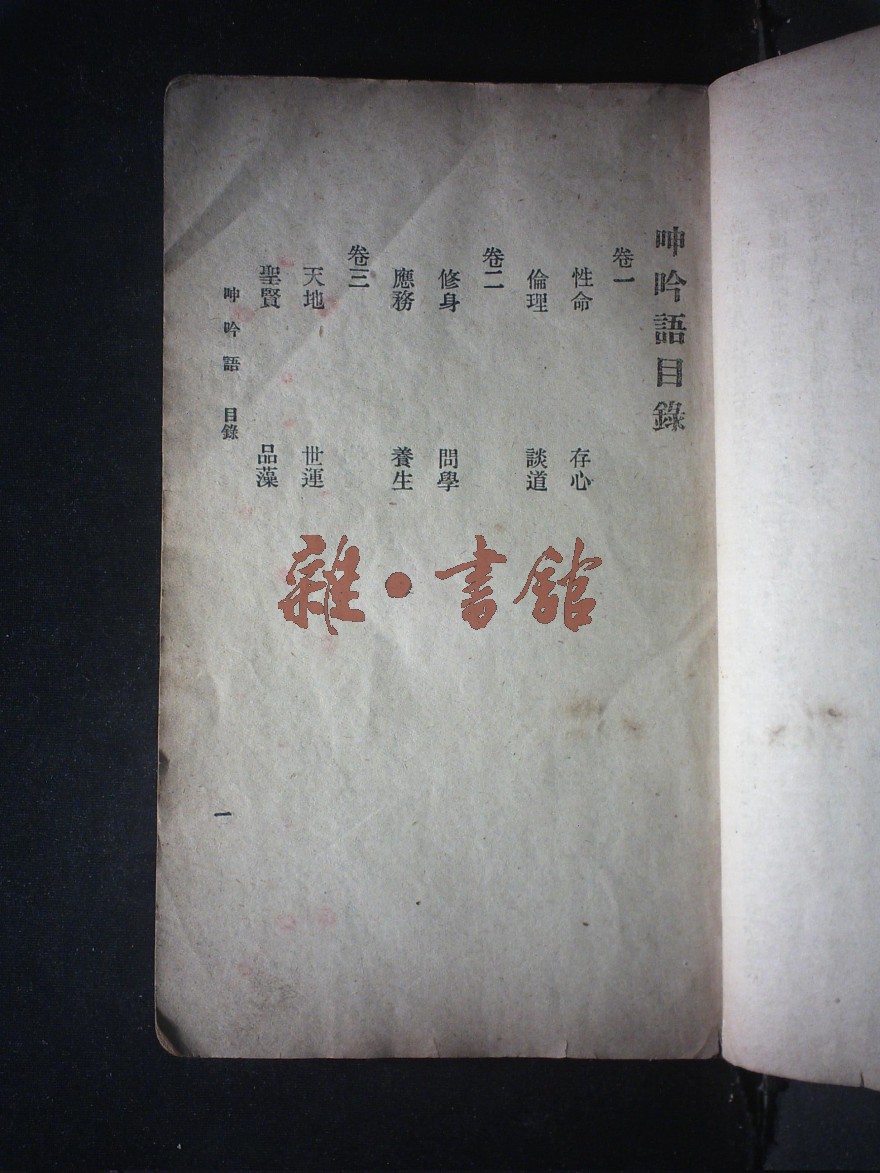 呻吟語目錄
卷一
性命 存心
倫理 談道
卷二
修身 問學
應務 養生
卷三
天地 世運
聖賢 品藻
呻吟語 目錄 一
雜·書館